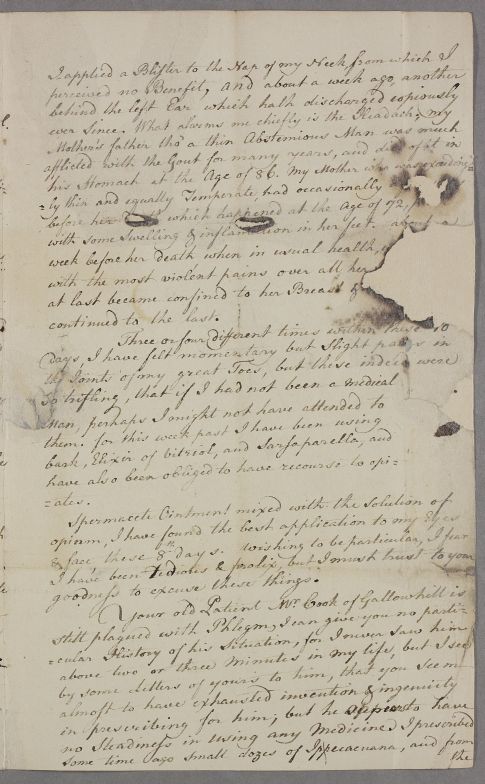 I applied a Blister to the Nap of my Neck, from which I
perceived no Benefit, and about a week ago, another
behind the left Ear which hath discharged copiously
ever Since. What alarms me chiefly is the Headach; my
Mother's father tho' a thin Abstemious Man was much
afflicted with the Gout for many years, and died of it in
his Stomach at the Age of 86. My Mother who was exceeding=
=ly thin and equally Temperate had occasionally
before her which happened at the age of 72,
with some Swelling & inflammation in her feet. about a
week before her Death when in usual health,
with the most violent pains over all her
at last became confined to her Breast &
continued to the last.
Three or four different times within these 10
days I have felt momentary but Slight pains in
the Joints of my great Toes, but these indeed were
so trifling, that if I had not been a medical
Man, perhaps I might not have attended to
them. for this week past I have been using
bark, Elixir of vitriol, and Sarsaparella, and
have also been obliged to have recourse to opi=
=ates.
Spermaceti Ointment mixed with the Solution of
opium, I have found the best application to my Eyes
& face these 8 days. wishing to be particular, I fear
I have been tedious & prolix, but I must trust to your
goodness to excuse these things.
Your old Patient Mr. Cook of Gallowhill is
still plagued with Phlegm, I can give you no parti=
=cular History of his Situation, for I never saw him
above two or three minutes in my life, but I see
by some Letters of yours to him, that you seem
almost to have exhausted invention & ingenuity
in prescribing for him; but he appears to have
no Steadiness in using any Medicine. I prescribed
some time ago small dozes of Ippecacuana, and from
the